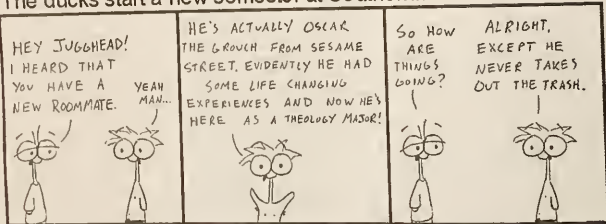 The ducks start a new semester at Southern
HEY JUGGHEAD!
I HEARD THAT
YOU HAVE A
NEW ROOMMATE.
YEAH
MAN...
HE'S ACTUALLY OSCAR
THE GROUCH FROM SESAME
STREET. EVIDENTLY HE HAD
SOME LIFE CHANGING
EXPERIENCES AND NOW HE'S
HERE AS A THEOLOGY MAJOR!
SO HOW
ARE
THINGS
GOING?
ALRIGHT,
EXCEPT HE
NEVER TAKES
OUT THE TRASH.